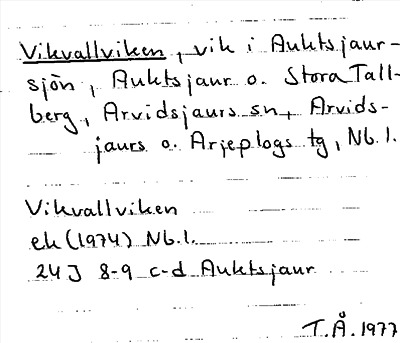 Vikvallviken, vik i Auktsjaur-
sjön, Auktsjaur o. Stora Tall-
berg, Arvidsjaurs sn, Arvids-
jaurs o. Arjeplogs tg, Nb. l.
Vikvallviken
ek (1974) Nb. l.
24J 8-9 c-d Auktsjaur
T.Å. 1977